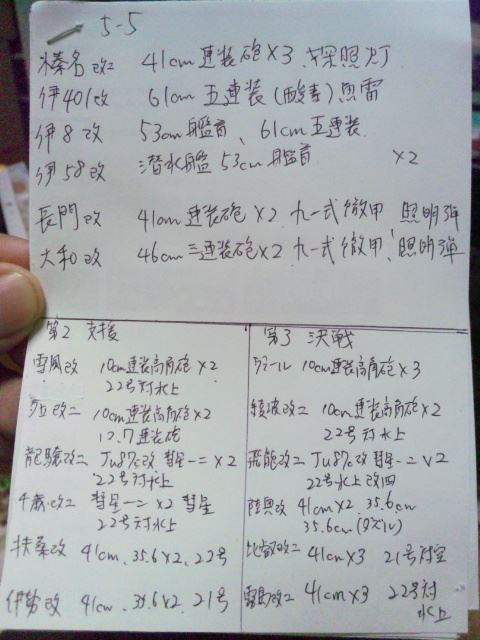 5-5
榛名改二 41cm連装砲×3 探照灯
伊401改 61cm五連装(酸素)魚雷
伊8改 53cm艦首、61cm五連装
伊58改 潜水艦53cm艦首 ×2
長門改 41cm連装砲×2 九一式徹甲 照明弾
大和改 46cm三連装砲×2 九一式徹甲、照明弾
第2 支援
雪風改 10cm連装高角砲×2
22号対水上
夕立改二 10cm連装高角砲×2
12.7連装砲
龍驤改二 Ju87c改 彗星一二×2
22号対水上
千歳改二 彗星一二×2 彗星
22号対水上
扶桑改 41cm、35.6×2、22号
伊勢改 41cm、35.6×2、21号
第3 決戦
10cm連装高角砲×3
綾波改二 10cm連装高角砲×2
22号対水上
飛龍改二 Ju87c改 彗星一二×2
22号水上改四
陸奥改 41cm×2、35.6cm
35.6cm(ダズル)
比叡改二 41cm×3 21号対空
霧島改二 41cm×3 22号対
水上